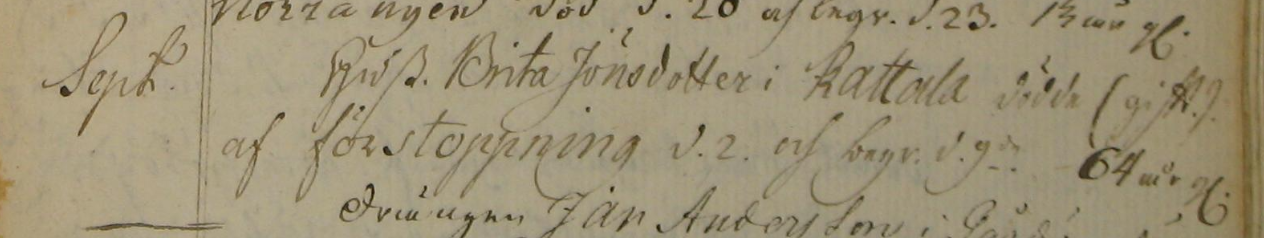 Norrängen död d. 20 och begr. d. 23. 13 år gl.
Sept. Hust. Brita Jönsdotter i Kattala dödde (gift.)
af förstoppning d. 2. och begr. d. 9de 64 år gl.
Drängen Jan Andersson i